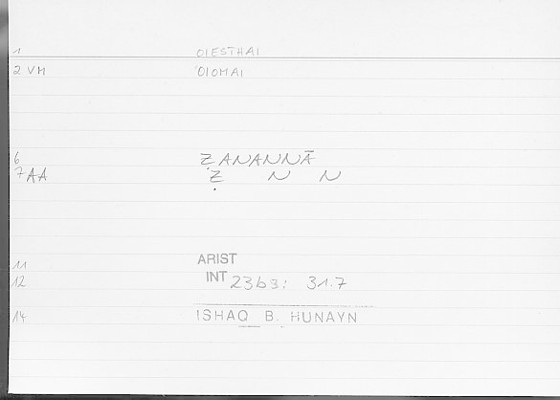 1 OIESTHAI
2 VM OIOMAI
6 ẒANANNĀ
7 AA Ẓ N N
11 ARIST
12 INT 23b3: 31.7
14 ISHAQ B. HUNAYN